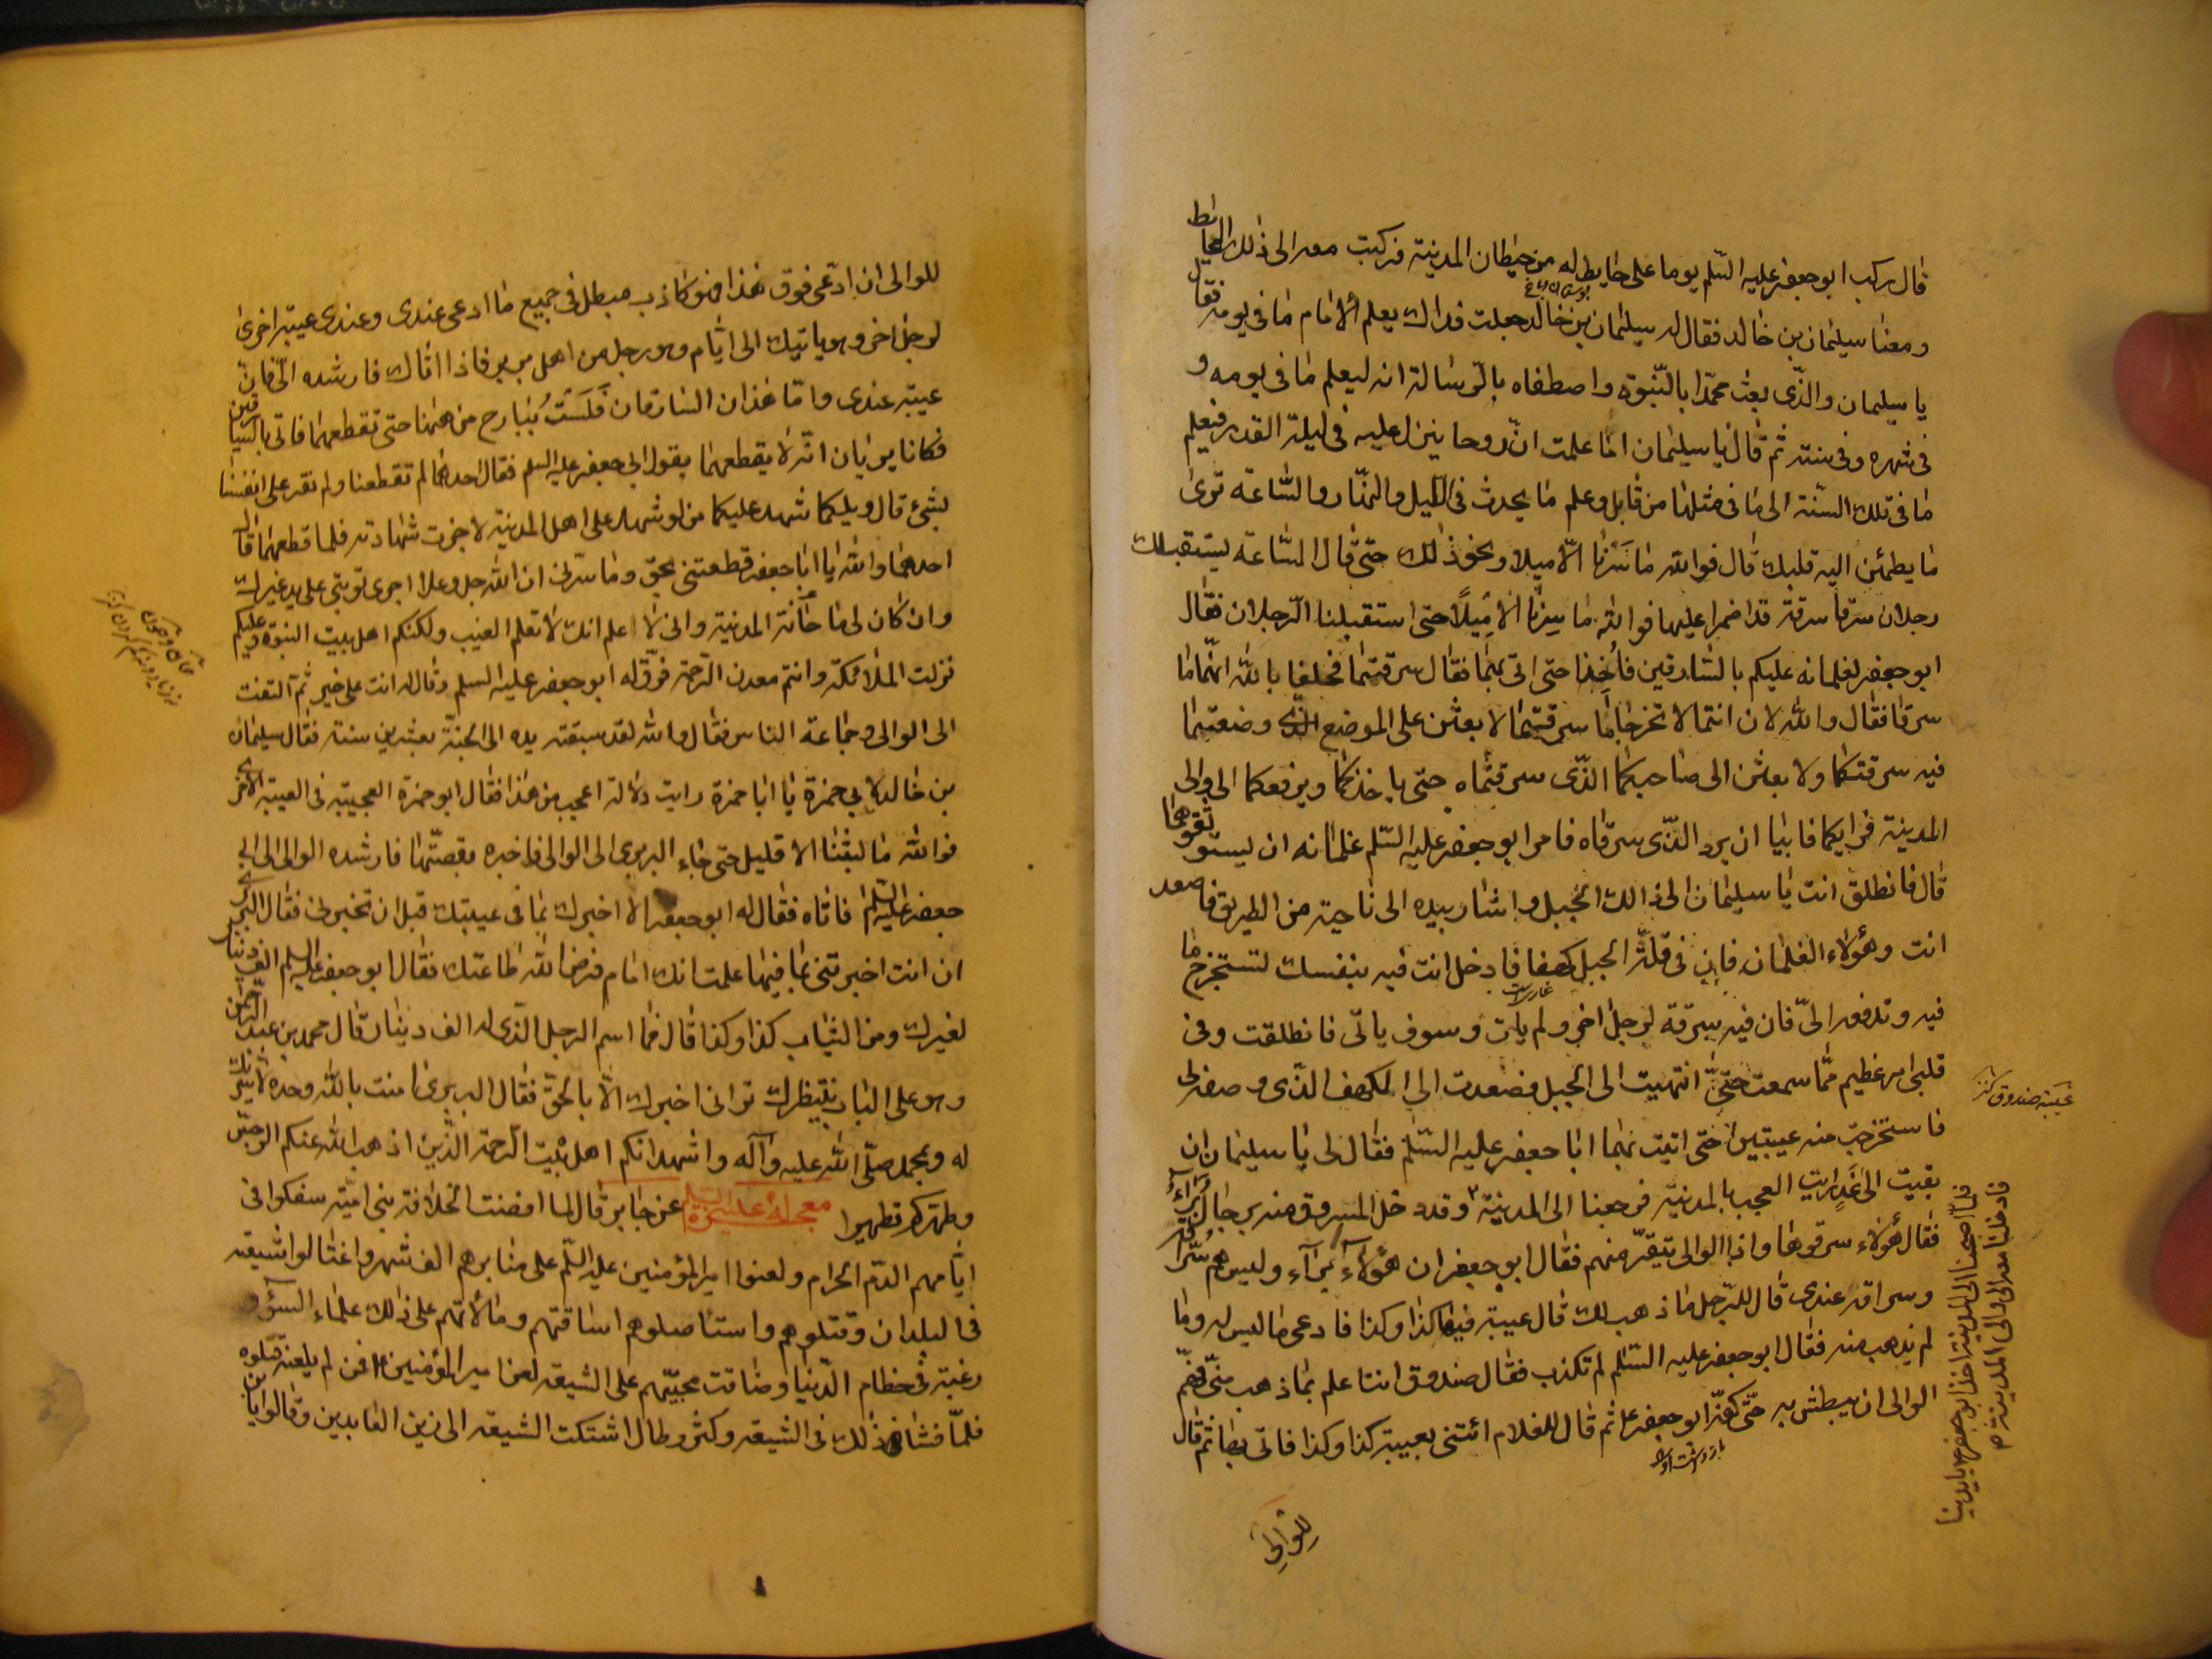 قال ركب ابو جعفر عليه السّلم يوما على حايط له من حيطان المدينة فركبت معه الى ذلك الحائط
ومعنا سليمان بن خالد فقال له سليمان بن خالد جعلت فداك يعلم الامام ما فى يومه فقال
يا سليمان والذّى بعث محمّدا بالنّبوّة واصطفاه بالرّسالة انه ليعلم ما فى يومه و
فى شهره وفى سنته ثم قال يا سليمان اما علمت انّ روحا ينزل عليه فى ليلة القدر فيعلم
ما فى تلك السّنة الى ما فى مثلها من قابل وعلم ما يحدث فى اللّيل والنّهار والسّاعة ترى
ما يطمئن اليه قلبك قال فوالله ما سرنا الّا ميلا ونحو ذلك حتّى قال السّاعة يستقبلك
رجلان سرقا سرقة قد اضمرا عليها فوالله ما سرنا الا ميلًا حتى استقبلنا الرّجلان فقال
ابو جعفر لغلمانه عليكم بالسّارقين فأخذا حتى اتى بهما فقال سرقتما فحلفا بالله انّهما ما
سرقا فقال والله لان انتما لا تخرجا ما سرقتما لابعثن على الموضع الذّى وضعتما
فيه سرقتكما ولابعثن الى صاحبكما الذّى سرقتماه حتى ياخذكما ويرفعكما الى والى
المدينة فرايكما فابيا ان يرد الذّى سرقاه فامر ابو جعفر عليه السّلم غلمانه ان يستوثقوا بهما
قال فانطلق انت يا سليمان الى ذالك الجبل واشار بيده الى ناحية من الطريق فاصعد
انت وهؤلاء الغلمان فان فى قلّة الجبل كهفا فادخل انت فيه بنفسك لتستخرج ما
فيه وتدفعه الىّ فان فيه سرقة لرجل اخر ولم يات وسوف ياتى فانطلقت وفى
قلبى امر عظيم ممّا سمعت حتىّ انتهيت الى الجبل فصعدت الى الكهف الذّى وصفه لى
فاستخرجت منه عيبتين حتى اتيت بهما ابا جعفر عليه السّلم فقال لى يا سليمان ان
بقيت الى غد رايت العجب بالمدينة فرجعنا الى المدينة وقد دخل المسروق منه برجال براء
فقال هؤلاء سرقوها واذا الوالى يتفرّسهم فقال ابو جعفر ان هؤلاء براء وليس هم سرّاقه
وسراقه عندى قال للرّجل ما ذهب لك قال عيبة فيها كذا وكذا فادعى ما ليس له وما
لم يذهب منه فقال ابو جعفر عليه السّلم لم تكذب فقال انت اعلم بما ذهب منّى فهمّ
الوالى ان يبطش به حتّى كفّه ابو جعفر ثم قال للغلام ائتنى بعيبة كذا وكذا فاتى بها ثم قال
عيبة صندوق
فلمّا اصبحنا الى المدينة اخذ ابو جعفر بايدينا
فادخلنا معه الى والى المدينة
للوالى
للوالى ان ادّعى فوق هذا فهو كاذب مبطل فى جميع ما ادعى عندى وعندى عيبة اخرى
لرجل اخر وهو ياتيك الى ايّام وهو رجل من اهل بربر فاذا اتاك فارشده الىّ فانّ
عيبته عندى وامّا هذان السّارقان فلستُ ببارح من ههنا حتى تقطعهما فاتى بالسّارقين
فكانا يريان انّه لا يقطعهما بقول ابى جعفر عليه السلم فقال احدهما لم تقطعنا ولم نقر على انفسنا
بشىء قال ويلكما شهد عليكما من لو شهد على اهل المدينة لاجزت شهادته فلما قطعهما قال
احدهما والله يا ابا جعفر قطعتنى بحق وما سرّنى ان الله جل وعلا اجرى توبتى على يد غيرك
وان كان لى ما حازته المدينة وانى لا اعلم انك لا تعلم الغيب ولكنكم اهل بيت النبوة وعليكم
نزلت الملائكة وانتم معدن الرّحمة فرقّ له ابو جعفر عليه السلم وقال له انت على خير ثم التفت
الى الوالى وجماعة الناس فقال والله لقد سبقته يده الى الجنّة بعشرين سنة فقال سليمان
بن خالد لابى حمزة يا ابا حمزة رايت دلالة اعجب من هذا فقال ابو حمزة العجيبة فى العيبة الاخرى
فوالله ما لبثنا الا قليل حتى جاء البربرى الى الوالى فاخبره بقصّتها فارشده الوالى الى ابى
جعفر عليه السّلم فاتاه فقال له ابو جعفر الا اخبرك بما فى عيبتك قبل ان تخبرنى فقال البربرى
ان انت اخبرتنى بما فيها علمت انك امام فرض الله طاعتك فقال ابو جعفر عليه السلم الف دينار
لغيرك ومن الثياب كذا وكذا قال فما اسم الرجل الذّى له الف دينار قال محمد بن عبد الرّحمن
وهو على الباب ينتظرك ترانى اخبرك الّا بالحقّ فقال البربرى امنت بالله وحده لا شريك
له وبمحمد صلّى الله عليه وآله واشهد انكم اهل بيت الرّحمة الذّين اذهب الله عنكم الرجس
وطهركم تطهيرا معجزاته عليه السّلم عن جابر قال لما افضت الخلافة بنى اميّة سفكوا فى
ايّامهم الدّم الحرام ولعنوا امير المؤمنين عليه السّلم على منابرهم الف شهر واغتالوا شيعته
فى البلدان وقتلوهم واستاصلوهم اساقتهم ومالأتهم على ذلك علماء السوء و
رغبة فى حطام الدّنيا وصارت محنتهم على الشيعة لعن امير المؤمنين فمن لم يلعنه قتلوه
فلمّا فشا ذلك فى الشيعة وكثر وطال اشتكت الشيعة الى زين العابدين وقالوا يابن